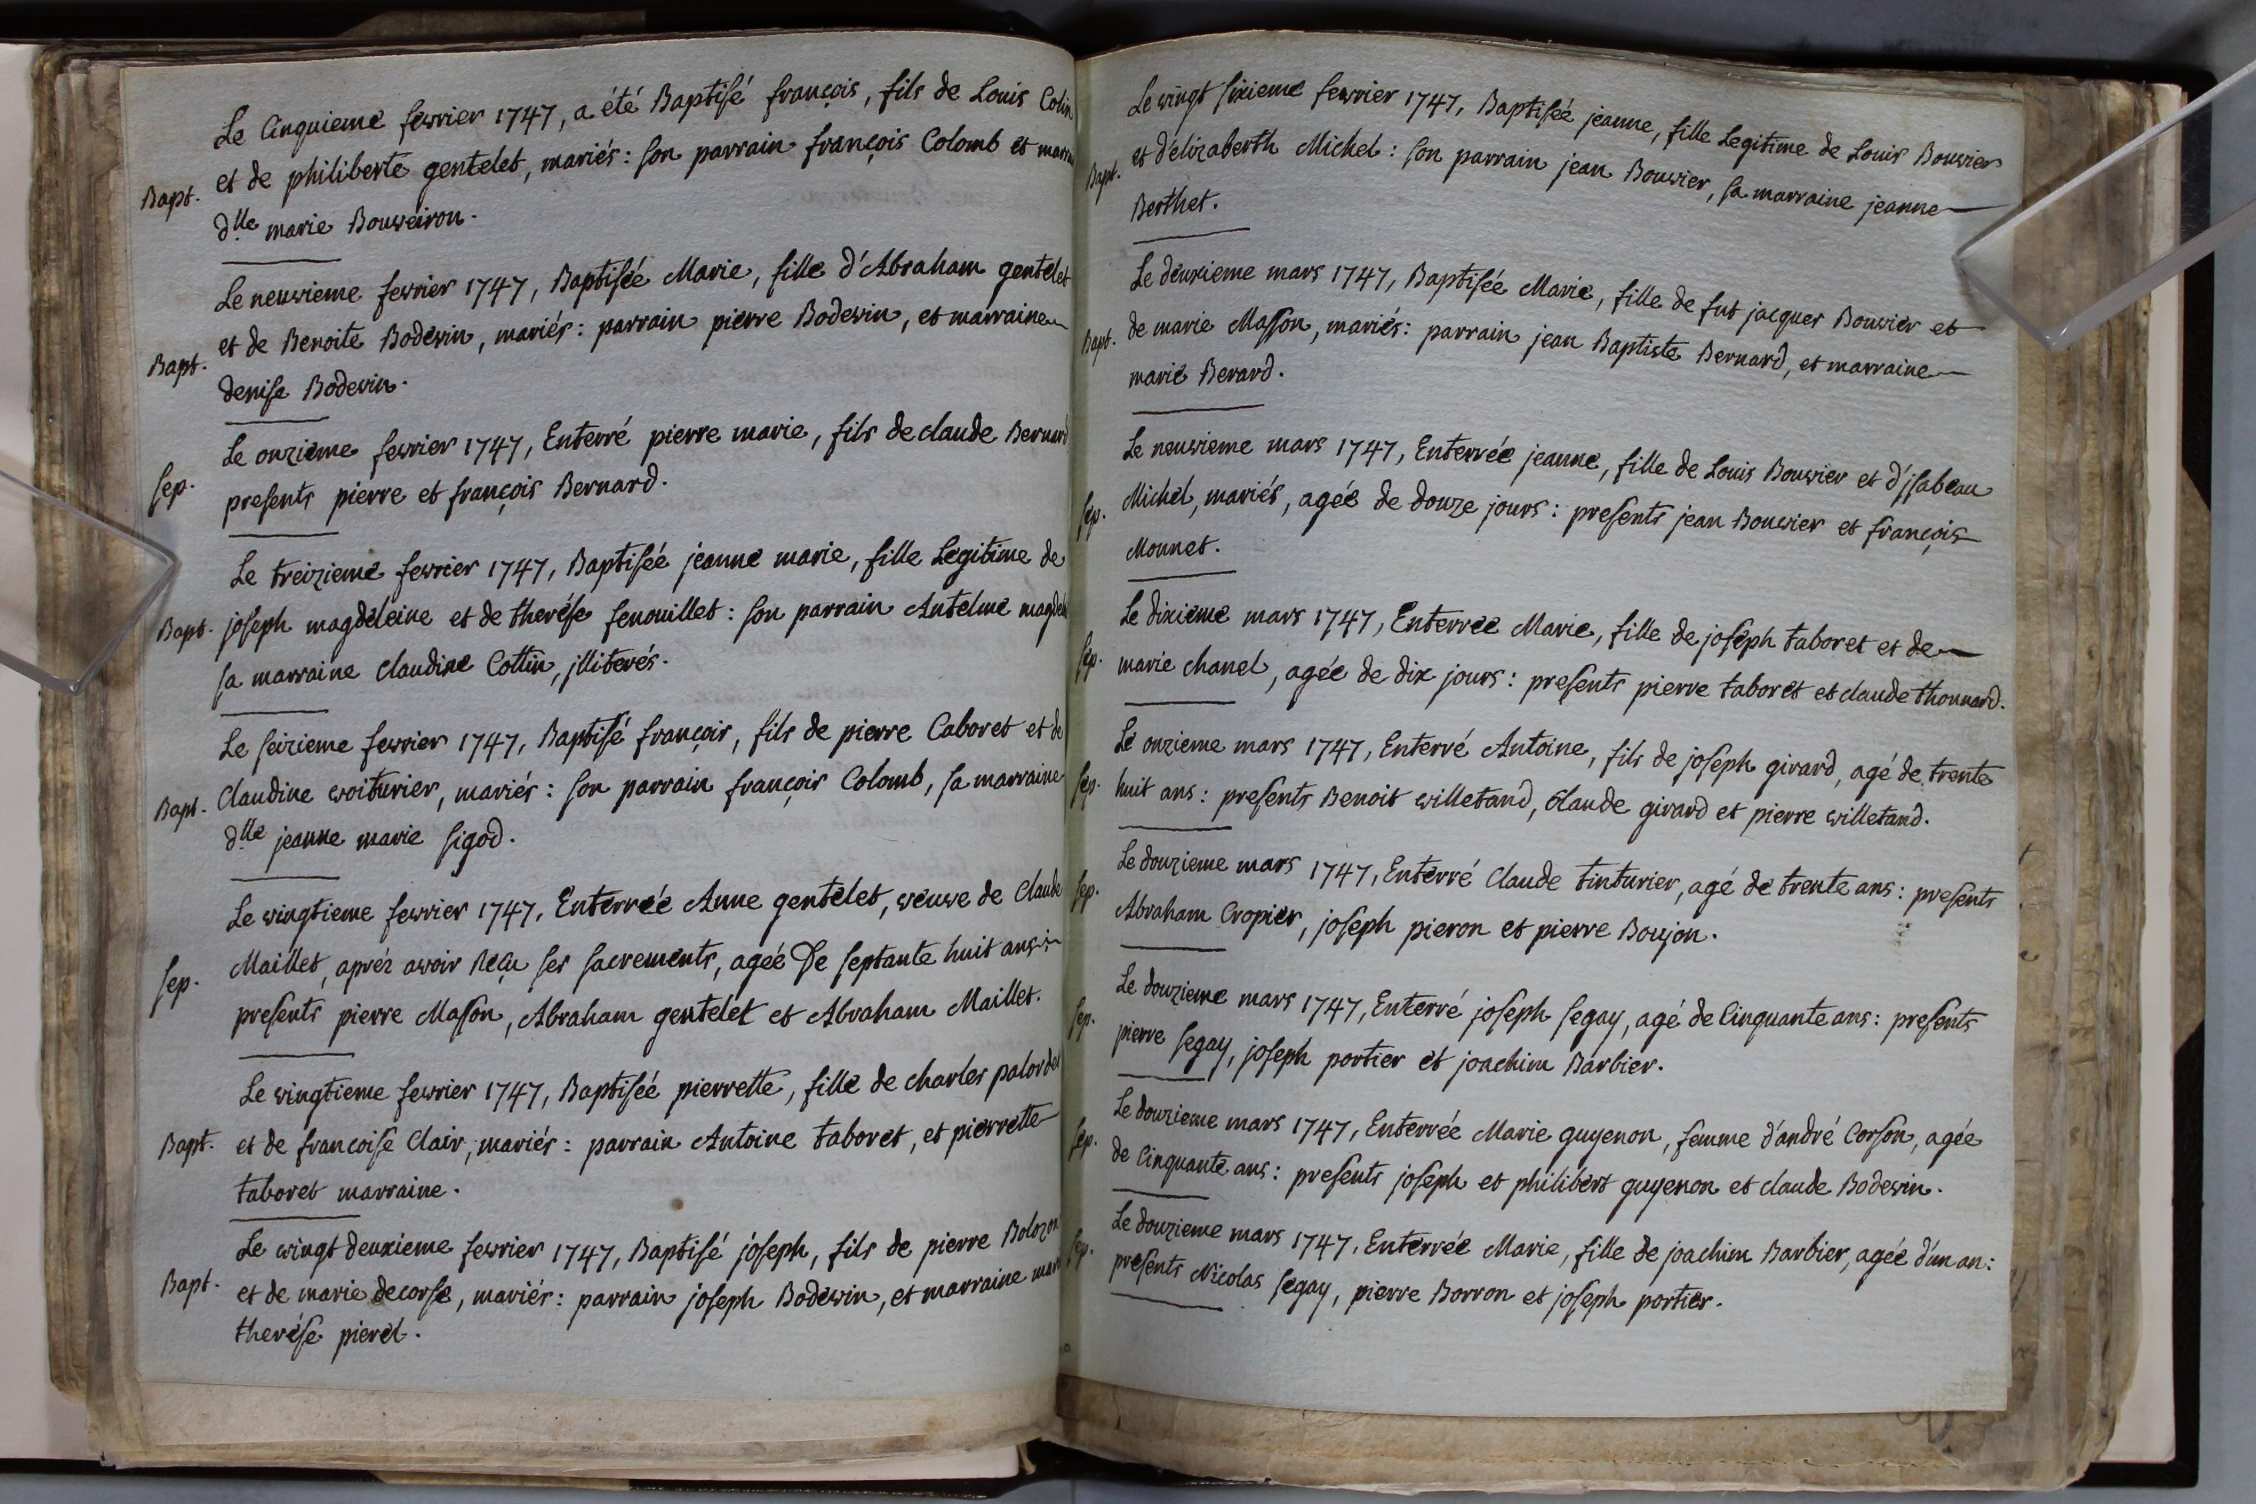 Le Cinquieme fevrier 1747, a été Baptisé françois, fils de Louis Colin
Bapt. et de philiberte gentelet, mariés: son parrain françois Colomb et
dlle marie Bouveiron.
Le neuvieme fevrier 1747, Baptisée Marie, fille d'Abraham gentelet
Bapt. et de Benoite Bodevin, mariés: parrain pierre Bodevin, et marraine
denise Bodevin.
Le onzieme fevrier 1747, Enterré pierre marie, fils de claude Bernard
sep. presents pierre et françois Bernard.
Le treizieme fevrier 1747, Baptisée jeanne marie, fille Legitime de
Bapt. joseph magdeleine et de therése fenouillet: son parrain Antelme
sa marraine claudine Cottin, jlliterés.
Le seizieme fevrier 1747, Baptisé françois, fils de pierre Caboret et de
Bapt. Claudine voiturier, mariés: son parrain françois Colomb, sa marraine
dlle jeanne marie sigod.
Le vingtieme fevrier 1747, Enterrée Anne gentelet, veuve de Claude
sep. Maillet, aprés avoir Reçu ses sacrements, agée De septante huit ans:
presents pierre Masson, Abraham gentelet et Abraham Maillet.
Le vingtieme fevrier 1747, Baptisée pierrette, fille de charles
Bapt. et de francoise Clair, mariés: parrain Antoine taboret, et pierrette
taboret marraine.
Le vingt deuxieme fevrier 1747, Baptisé joseph, fils de pierre Bolozon
Bapt. et de marie decorse, mariés: parrain joseph Bodevin, et marraine
therése pierel.
Le vingt sixieme fevrier 1747, Baptisée jeanne, fille Legitime de Louis Bouvier
Bapt. et d'elizaberth Michel: son parrain jean Bouvier, sa marraine jeanne
Berthet.
Le deuxieme mars 1747, Baptisée Marie, fille de fut jacques Bouvier et
Bapt. de marie Masson, mariés: parrain jean Baptiste Bernard, et marraine
marie Berard.
Le neuvieme mars 1747, Enterrée jeanne, fille de Louis Bouvier et d'jsabeau
sep. Michel, mariés, agée de douze jours: presents jean Bouvier et françois
Monnet.
Le dixieme mars 1747, Enterrée Marie, fille de joseph taboret et de
sep. marie chanel, agée de dix jours: presents pierre taboret et claude thonnard.
Le onzieme mars 1747, Enterré Antoine, fils de joseph girard, agé de trente
sep. huit ans: presents Benoit villetand, Claude girard et pierre villetand.
Le douzieme mars 1747, Enterré Claude tinturier, agé de trente ans: presents
sep. Abraham Cropier, joseph pieron et pierre Boujon.
Le douzieme mars 1747, Enterré joseph segay, agé de Cinquante ans: presents
sep. pierre segay, joseph portier et joachim Barbier.
Le douzieme mars 1747, Enterrée Marie guyenon, femme d'andré Corson, agée
sep. de Cinquante ans: presents joseph et philibert guyenon et claude Bodevin.
Le douzieme mars 1747, Enterrée Marie, fille de joachim Barbier, agée d'un an:
sep. presents Nicolas segay, pierre Borron et joseph portier.